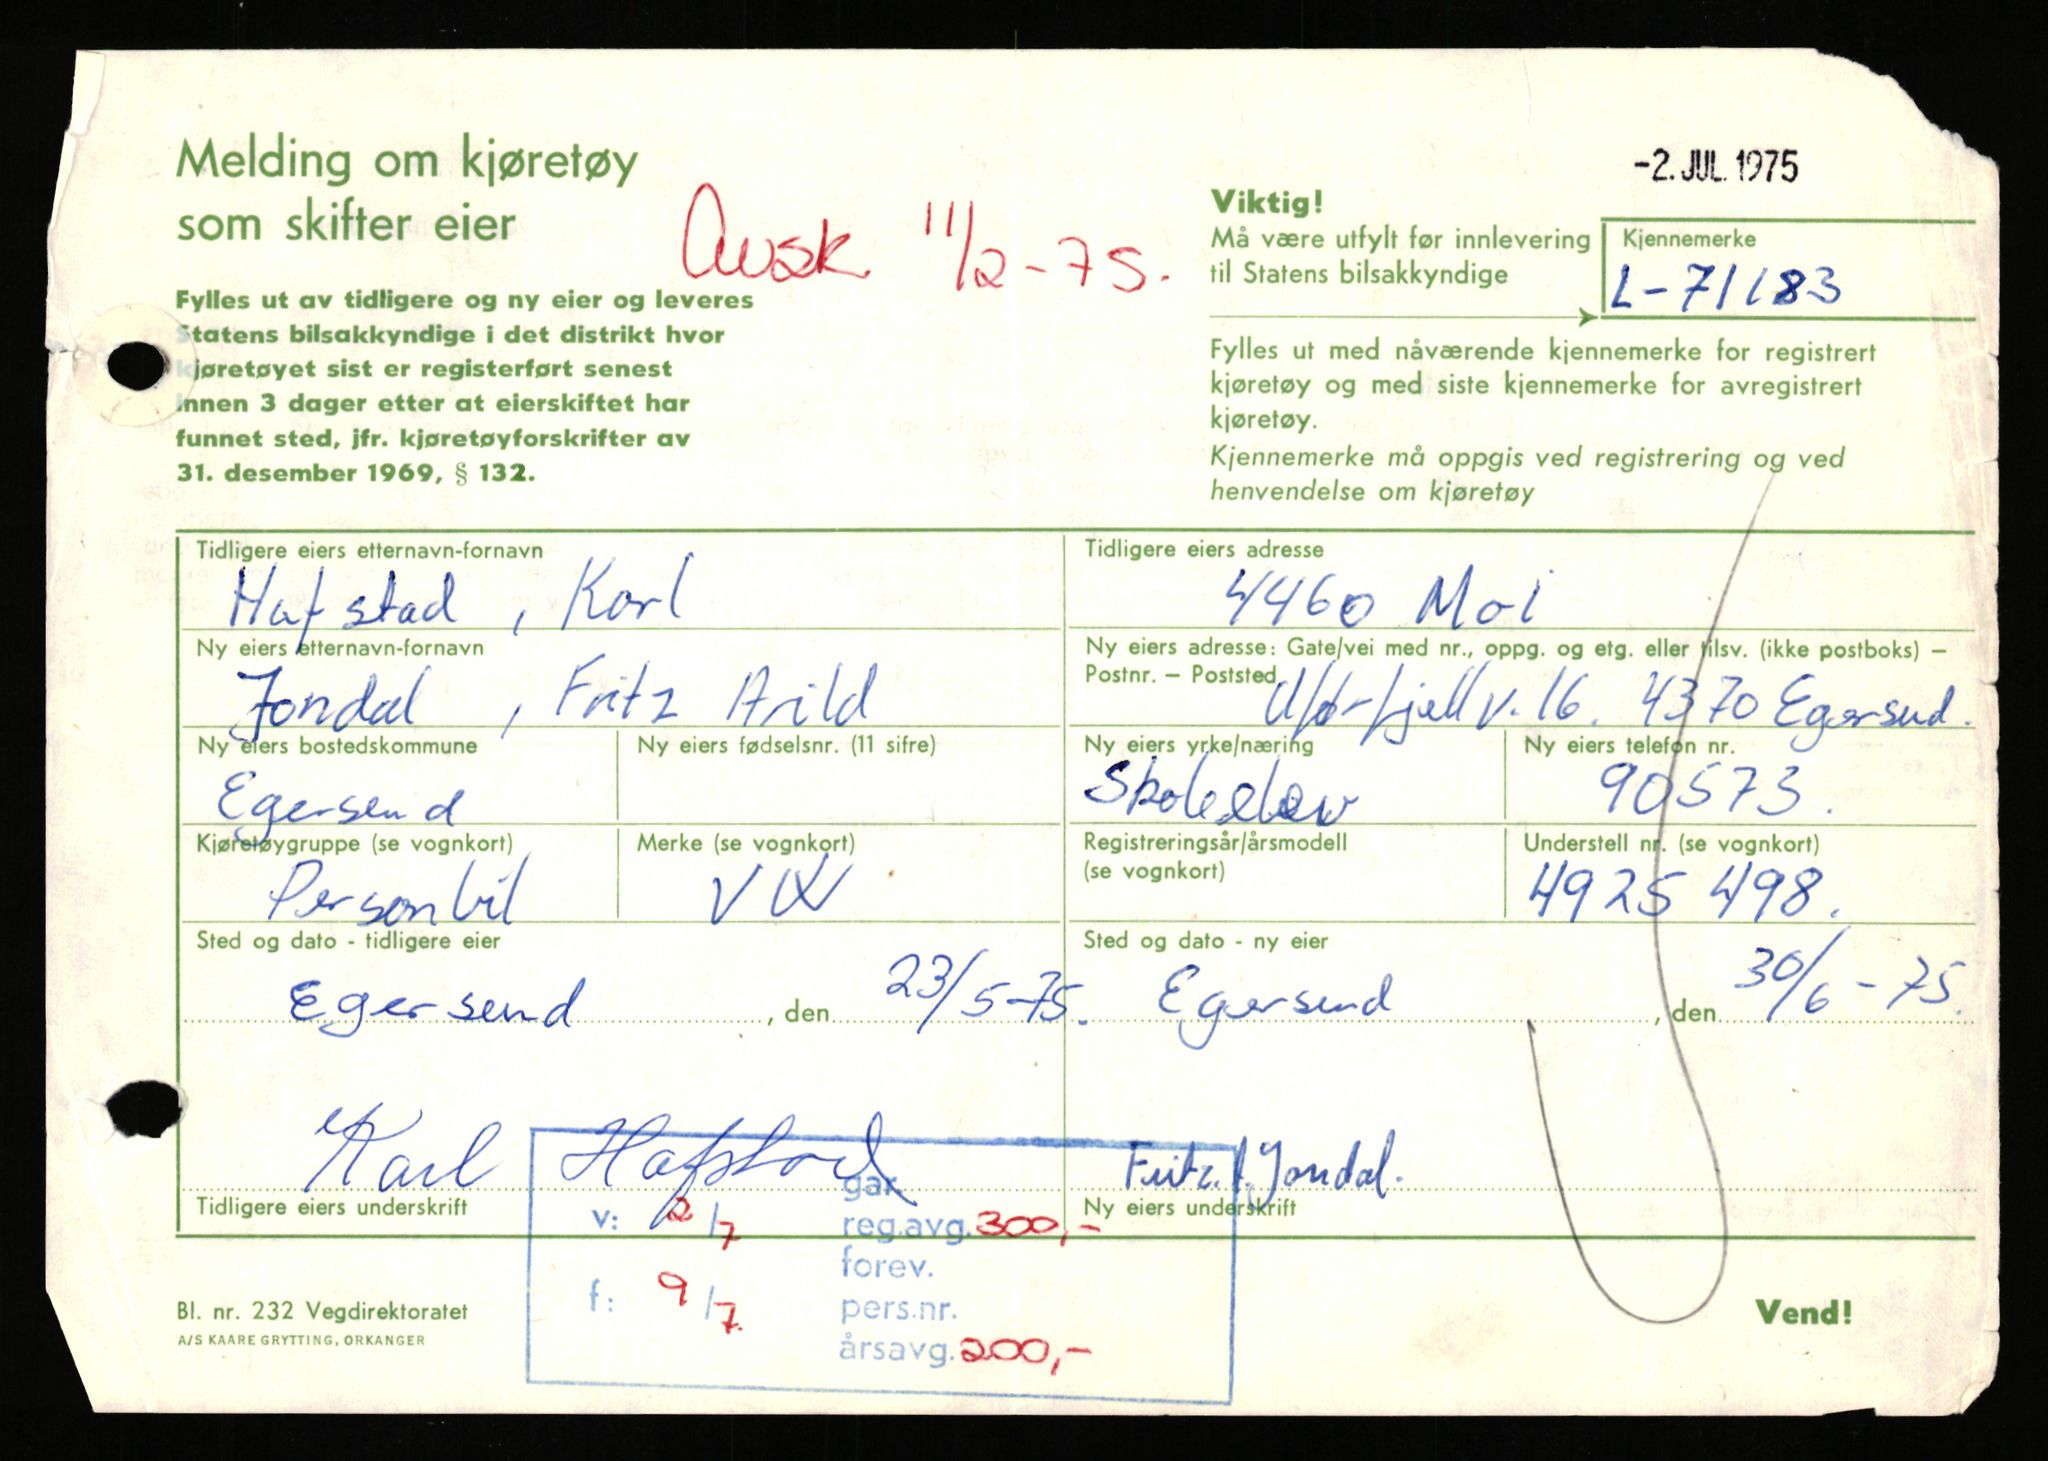 -2. JUL. 1975
Melding om kjøretøy
som skifter eier
Avsk. 11/2-75.
Viktig!
Må være utfylt før innlevering
til Statens bilsakkyndige
Kjennemerke
L-71183
Fylles ut av tidligere og ny eier og leveres
Statens bilsakkyndige i det distrikt hvor
kjøretøyet sist er registerført senest
innen 3 dager etter at eierskiftet har
funnet sted, jfr. kjøretøyforskrifter av
31. desember 1969, § 132.
Fylles ut med nåværende kjennemerke for registrert
kjøretøy og med siste kjennemerke for avregistrert
kjøretøy.
Kjennemerke må oppgis ved registrering og ved
henvendelse om kjøretøy
Tidligere eiers etternavn-fornavn
Hafstad, Karl
Tidligere eiers adresse
4460 Moi
Ny eiers etternavn-fornavn
Jondal, Fritz Arild
Ny eiers adresse: Gate/vei med nr., oppg. og etg. eller tilsv. (ikke postboks) –
Postnr. – Poststed
16. 4370 Egersud.
Ny eiers bostedskommune
Egersund
Ny eiers fødselsnr. (11 sifre)
Ny eiers yrke/næring
Skoleelev
Ny eiers telefon nr.
90573.
Kjøretøygruppe (se vognkort)
Personbil
Merke (se vognkort)
VW
Registreringsår/årsmodell
(se vognkort)
Understell nr. (se vognkort)
4925 498.
Sted og dato - tidligere eier
Egersund, den 23/5-75.
Sted og dato - ny eier
Egersund, den 30/6-75.
Karl Hafstad
Tidligere eiers underskrift
Fritz A. Jondal.
Ny eiers underskrift
gar.
v: 2/7
reg.avg. 300,-
forev.
f: 9/7.
pers.nr.
årsavg. 200,-
Bl. nr. 232 Vegdirektoratet
A/S KAARE GRYTTING, ORKANGER
Vend!